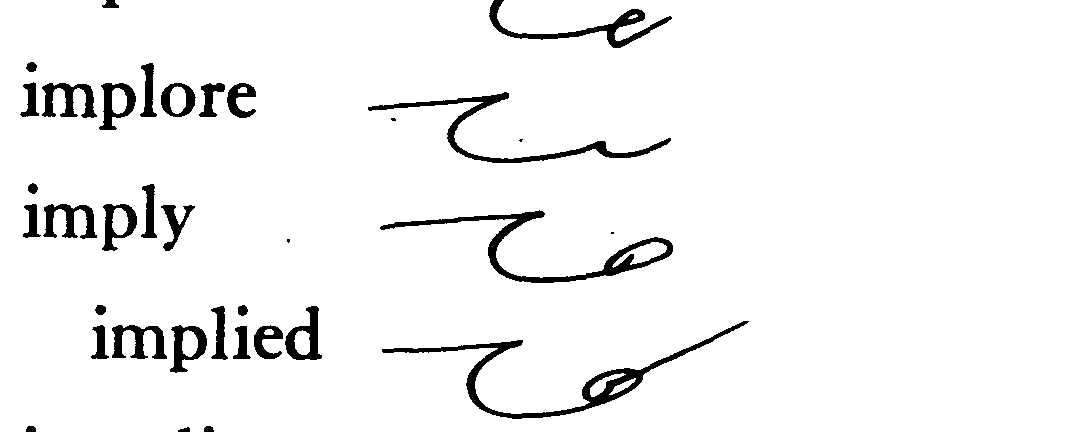 implore
imply
implied